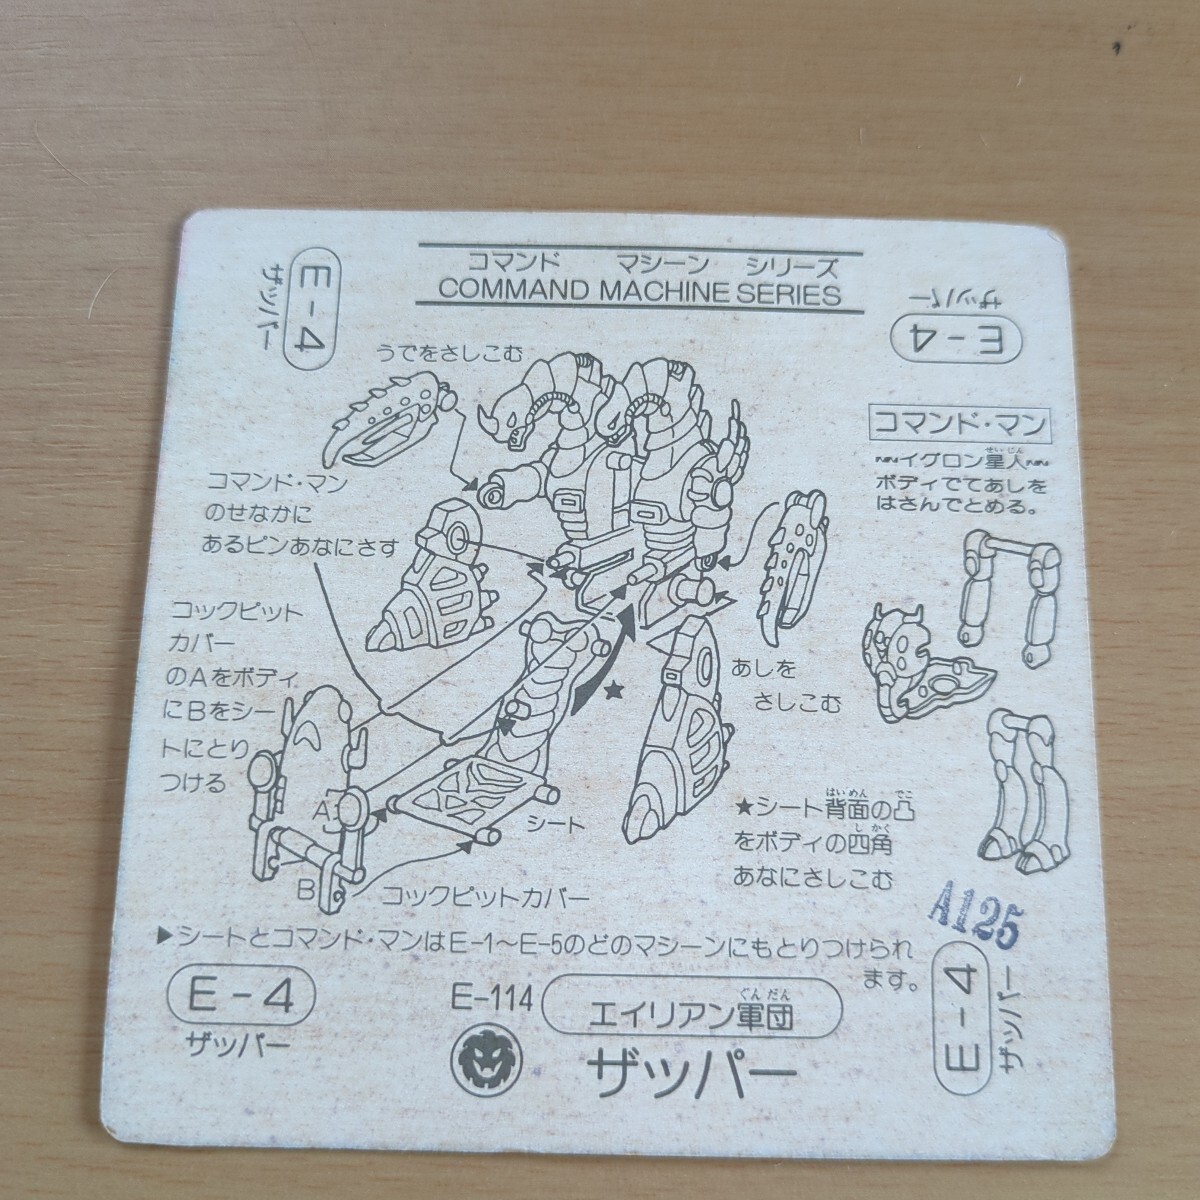 コマンド マシーン シリーズ
COMMAND MACHINE SERIES
E-4
ザッパー
E-4
ザッパー
うでをさしこむ
コマンド・マン
のせなかに
あるピンあなにさす
コマンド・マン
イグロン星人
せいじん
ボディでてあしを
はさんでとめる。
コックピット
カバー
のAをボディ
にBをシー
トにとり
つける
あしを
さしこむ
A
B
シート
コックピットカバー
★
★シート背面の凸
はいめん でこ
をボディの四角
しかく
あなにさしこむ
A125
▶シートとコマンド・マンはE-1〜E-5のどのマシーンにもとりつけられ
ます。
E-4
ザッパー
E-114
エイリアン軍団
ぐんだん
ザッパー
E-4
ザッパー